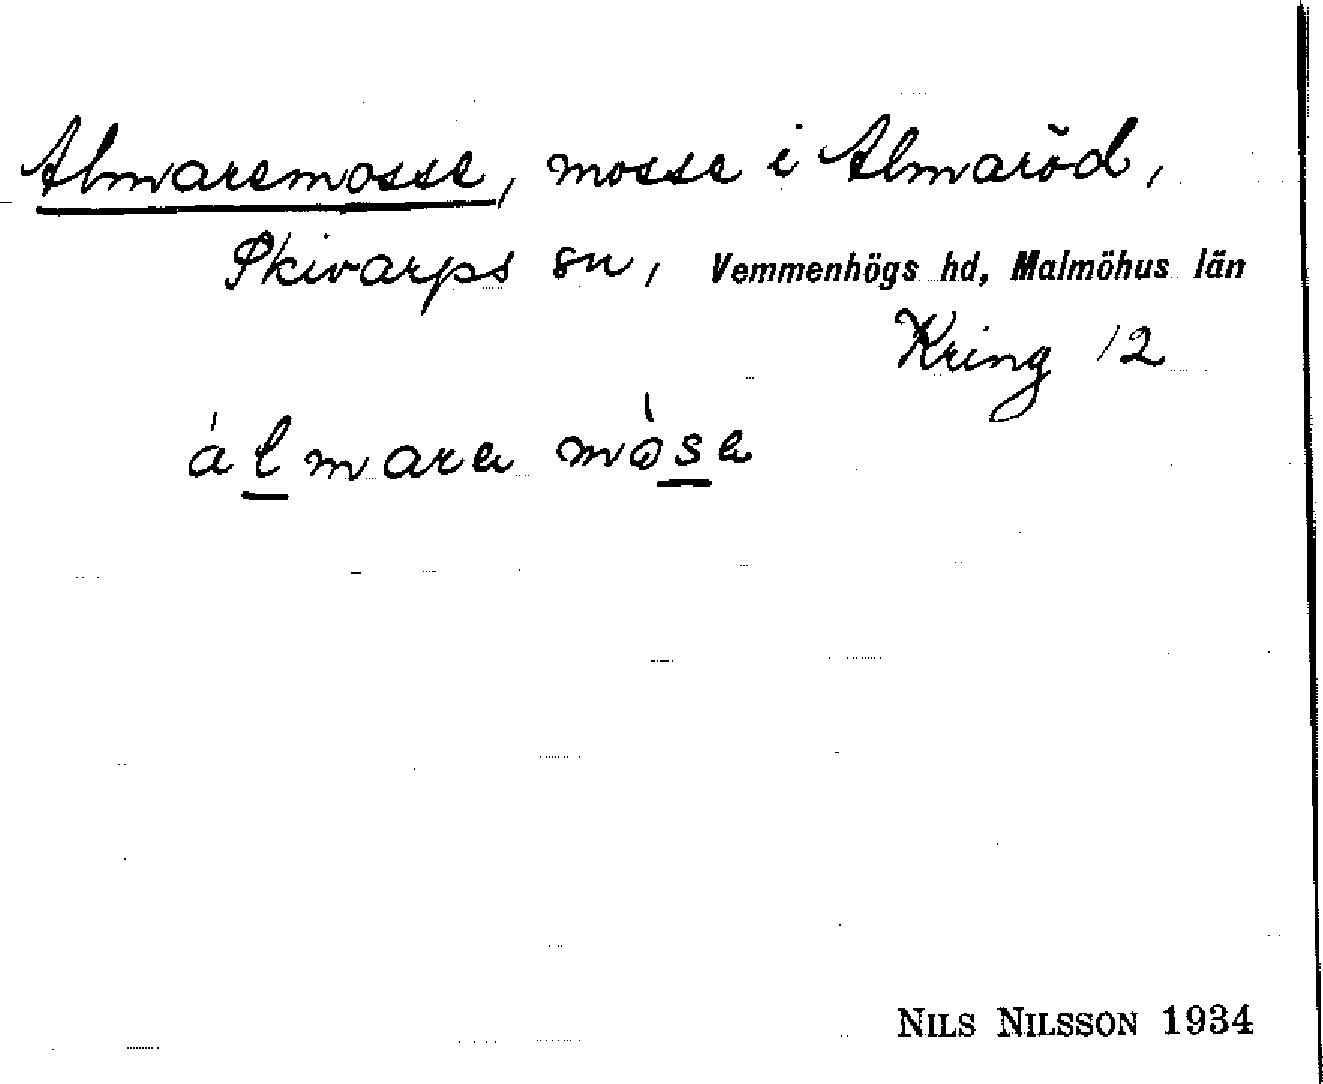 Almaremosse, mosse i Almaröd,
Skivarps sn, Vemmenhögs hd, Malmöhus län
Kring 12
álmara mòsa
NILS NILSSON 1934